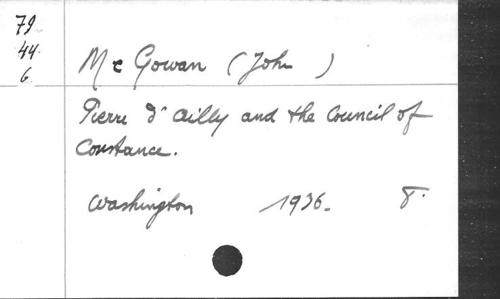 79
44
6.
Mc Gowan (John )
Pierre d'Ailly and the Council of
Constance.
Washington 1936. 8.